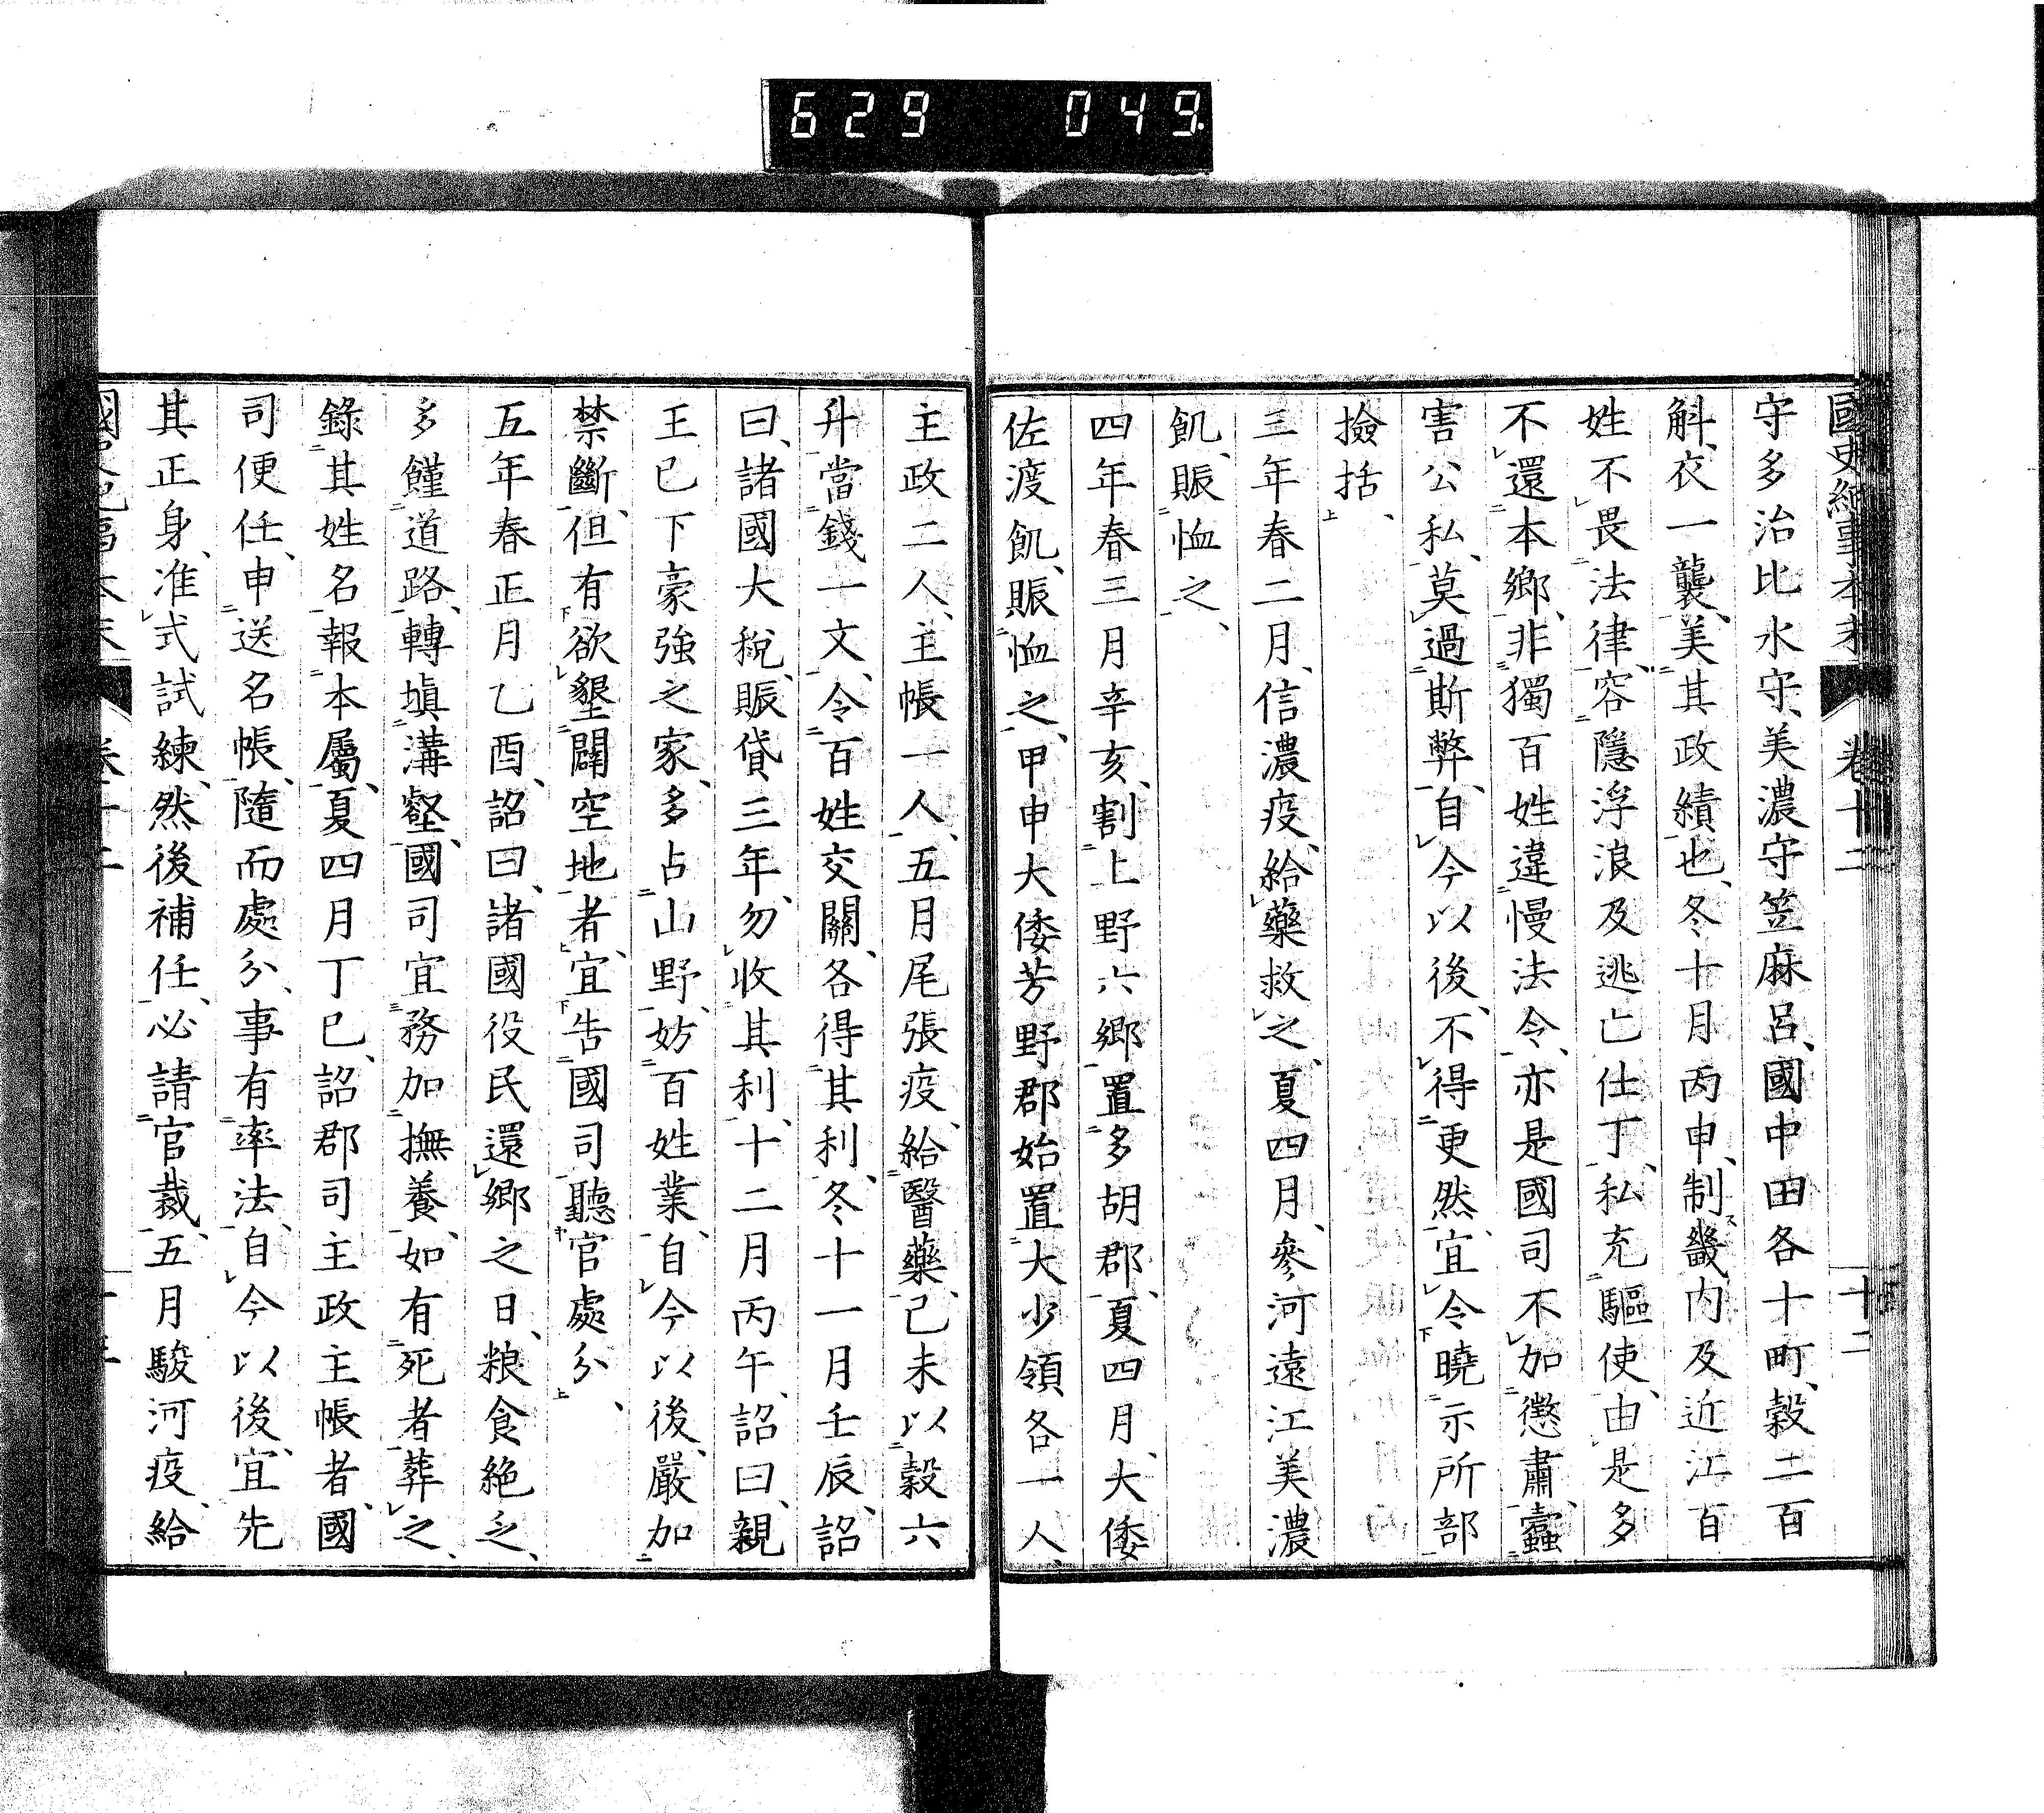 629 049
國史紀事本末 卷十二 十二
守多治比水守、美濃守笠麻呂、國中田各十町、穀二百
斛、衣一襲、美其政績也、冬十月丙申、制畿内及近江百
姓不畏法律、容隱浮浪及逃亡仕丁、私充驅使、由是多
不還本鄉、非獨百姓違慢法令、亦是國司不加懲肅、蠹
害公私、莫過斯弊、自今以後、不得更然、宜令曉示所部
撿括、
三年春二月、信濃疫、給藥救之、夏四月、參河遠江美濃
飢、賑恤之、
四年春三月辛亥、割上野六鄉置多胡郡、夏四月、大倭
佐渡飢、賑恤之、甲申大倭芳野郡始置大少領各一人、
主政二人、主帳一人、五月尾張疫、給醫藥、己未以穀六
升當錢一文、令百姓交關、各得其利、冬十一月壬辰、詔
曰、諸國大稅、賑貸三年、勿收其利、十二月丙午、詔曰、親
王已下豪強之家、多占山野、妨百姓業、自今以後、嚴加
禁斷、但有欲墾闢空地者、宜告國司聽官處分、
五年春正月乙酉、詔曰、諸國役民還鄉之日、粮食絶乏、
多饉道路、轉塡溝壑、國司宜務加撫養、如有死者葬之、
錄其姓名報本屬、夏四月丁巳、詔郡司主政主帳者、國
司便任、申送名帳、隨而處分、事有率法、自今以後、宜先
其正身、准式試練、然後補任、必請官裁、五月駿河疫、給